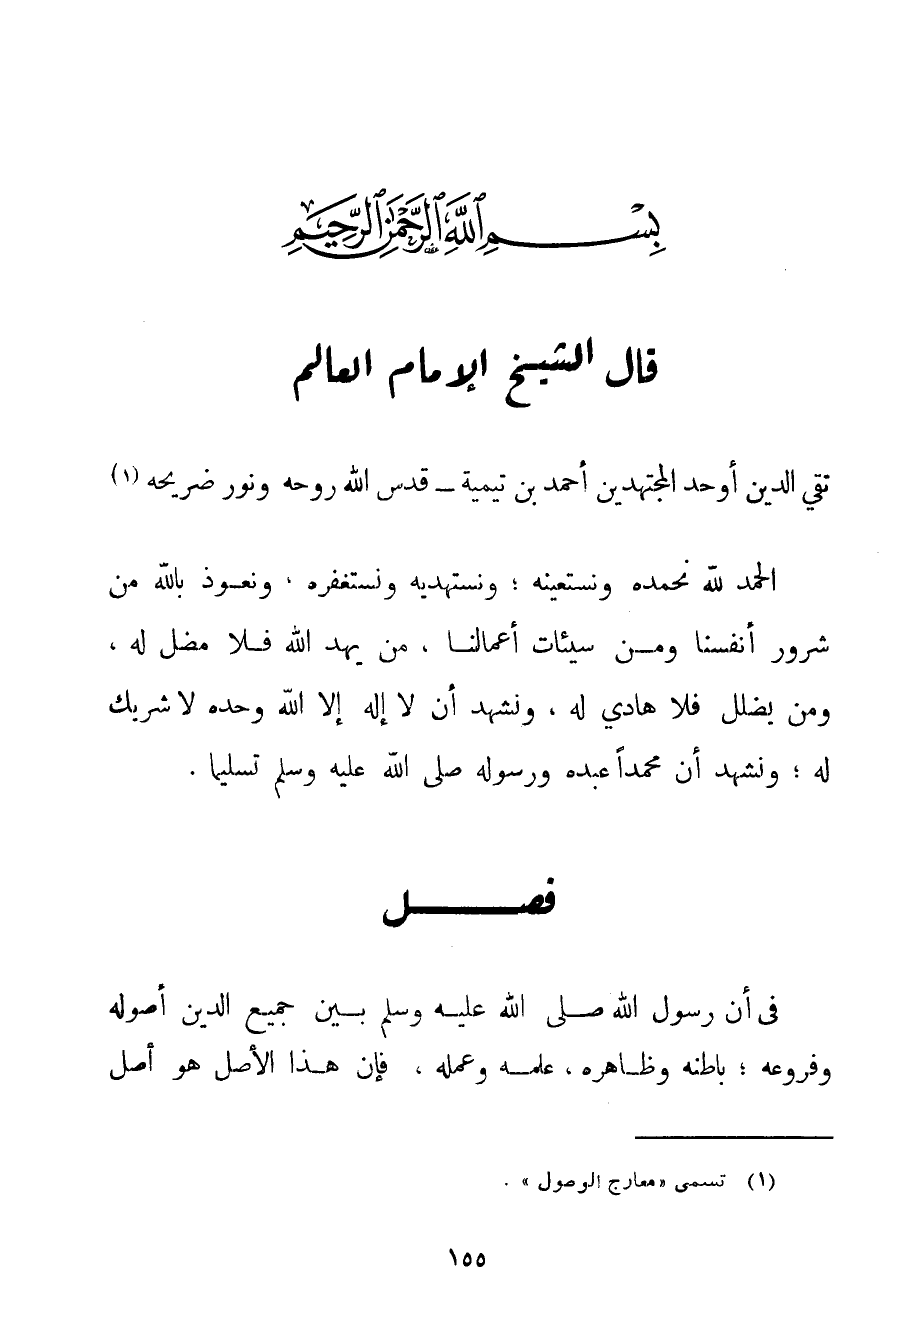 بِسْمِ اللَّهِ الرَّحْمَٰنِ الرَّحِيمِ
قال الشيخ الإمام العالم
تقي الدين أوحد المجتهدين أحمد بن تيمية ــ قدس الله روحه ونور ضريحه (١)
الحمد لله نحمده ونستعينه ؛ ونستهديه ونستغفره ، ونعوذ بالله من
شرور أنفسنا ومن سيئات أعمالنا ، من يهد الله فلا مضل له ،
ومن يضلل فلا هادي له ، ونشهد أن لا إله إلا الله وحده لا شريك
له ؛ ونشهد أن محمداً عبده ورسوله صلى الله عليه وسلم تسليما .
فصل
فى أن رسول الله صلى الله عليه وسلم بين جميع الدين أصوله
وفروعه ؛ باطنه وظاهره ، علمه وعمله ، فإن هذا الأصل هو أصل
(١) تسمى «معارج الوصول» .
١٥٥